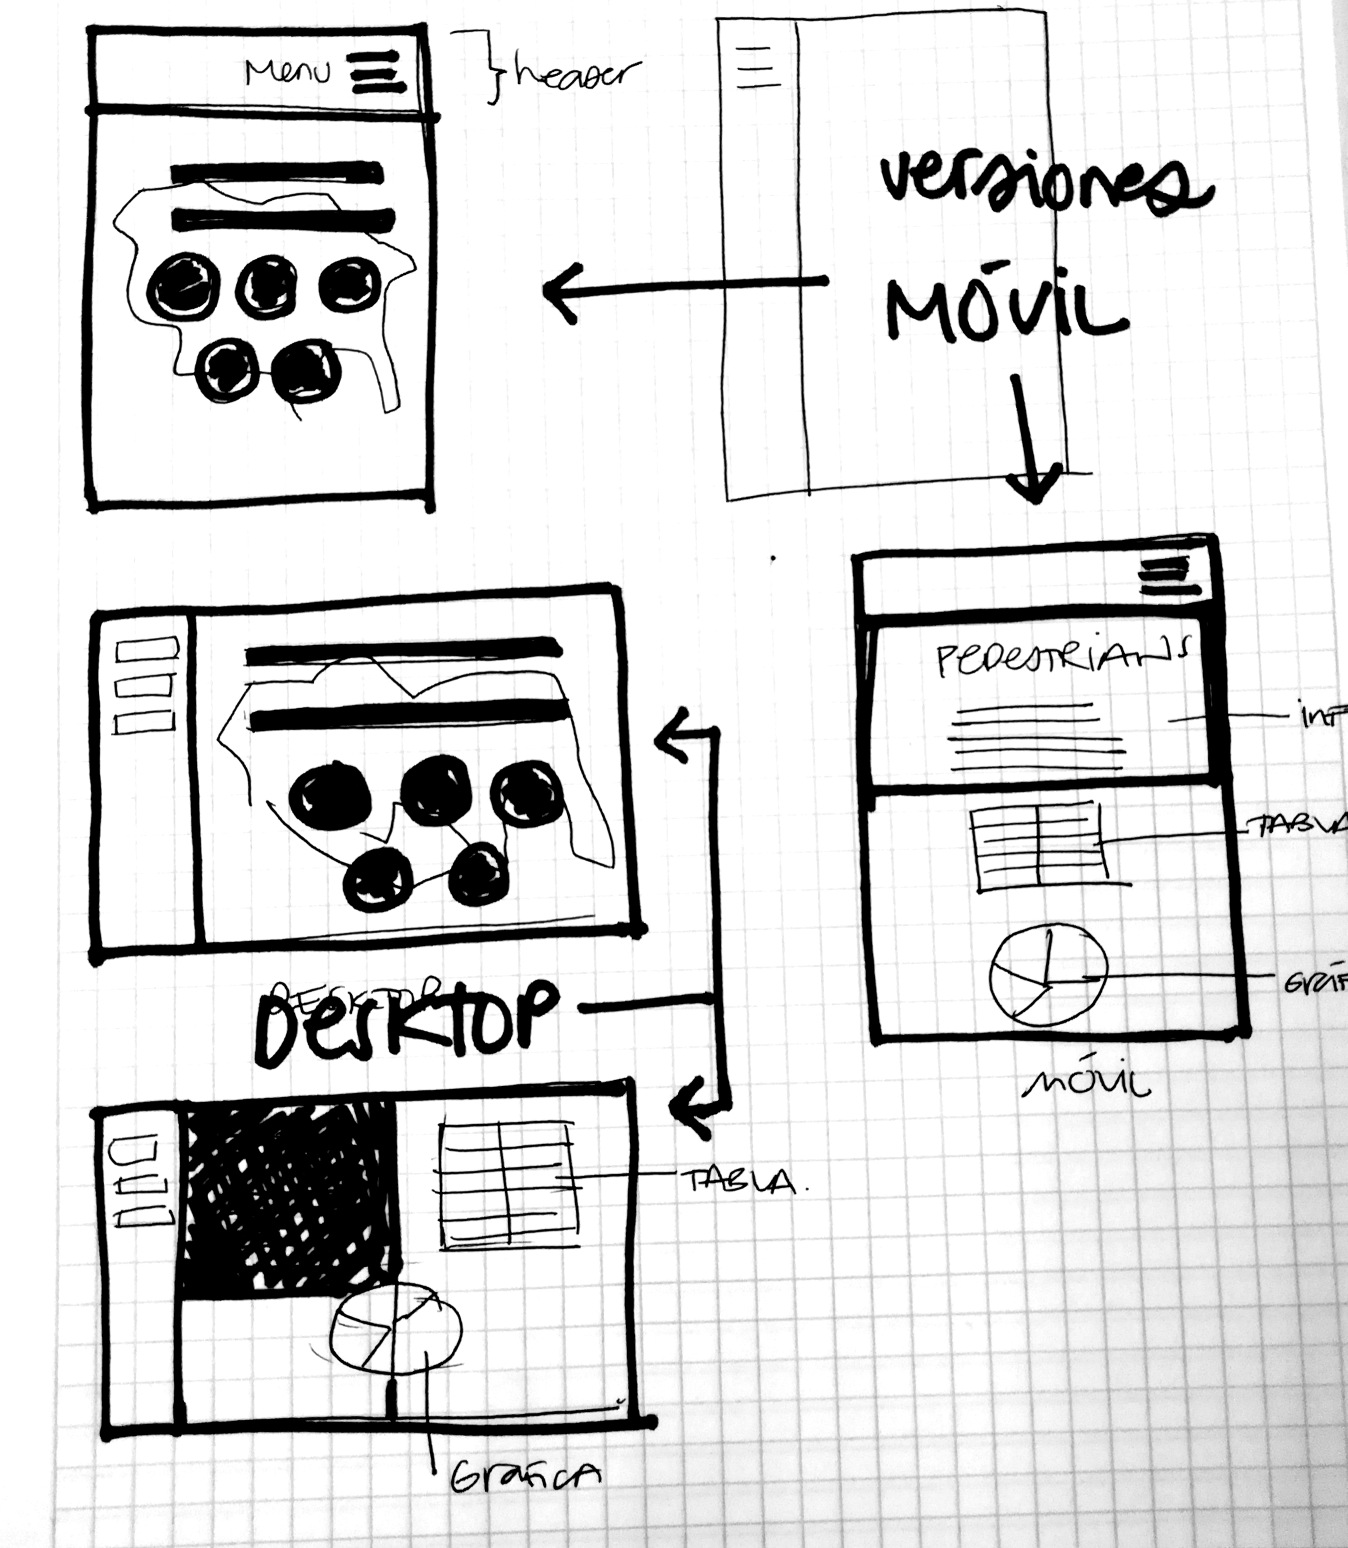 Menu
header
versiones
MÓVIL
PEDESTRIANS
INF
TABLA
GRÁF
MÓVIL
DESKTOP
DESKTOP
TABLA.
GRáFICA